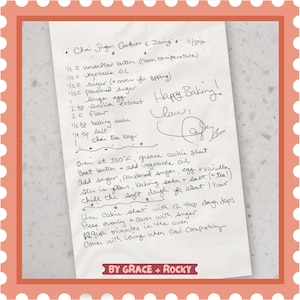 Chai Sugar Cookies & Icing 11/2014
1/2 C unsalted butter (room temperature)
1/2 C vegetable oil
1/2 C sugar (+ more for topping)
1/2 C powdered sugar
large egg
vanilla extract
2 C flour
1/2 tsp baking soda
1/4 tsp salt
chai tea bag
Happy Baking!
Love,
Oven at 350°F, grease cookie sheet
Beat butter + vegetable oil
Add sugar, powdered sugar, egg + vanilla
Stir in flour, baking soda + salt (+ tea!)
Chill the soft dough for about 1 hour
Line cookie sheet with 12 dough drops
Press evenly + cover with sugar
minutes in the oven
Cover with icing when cool completely
BY GRACE + ROCKY